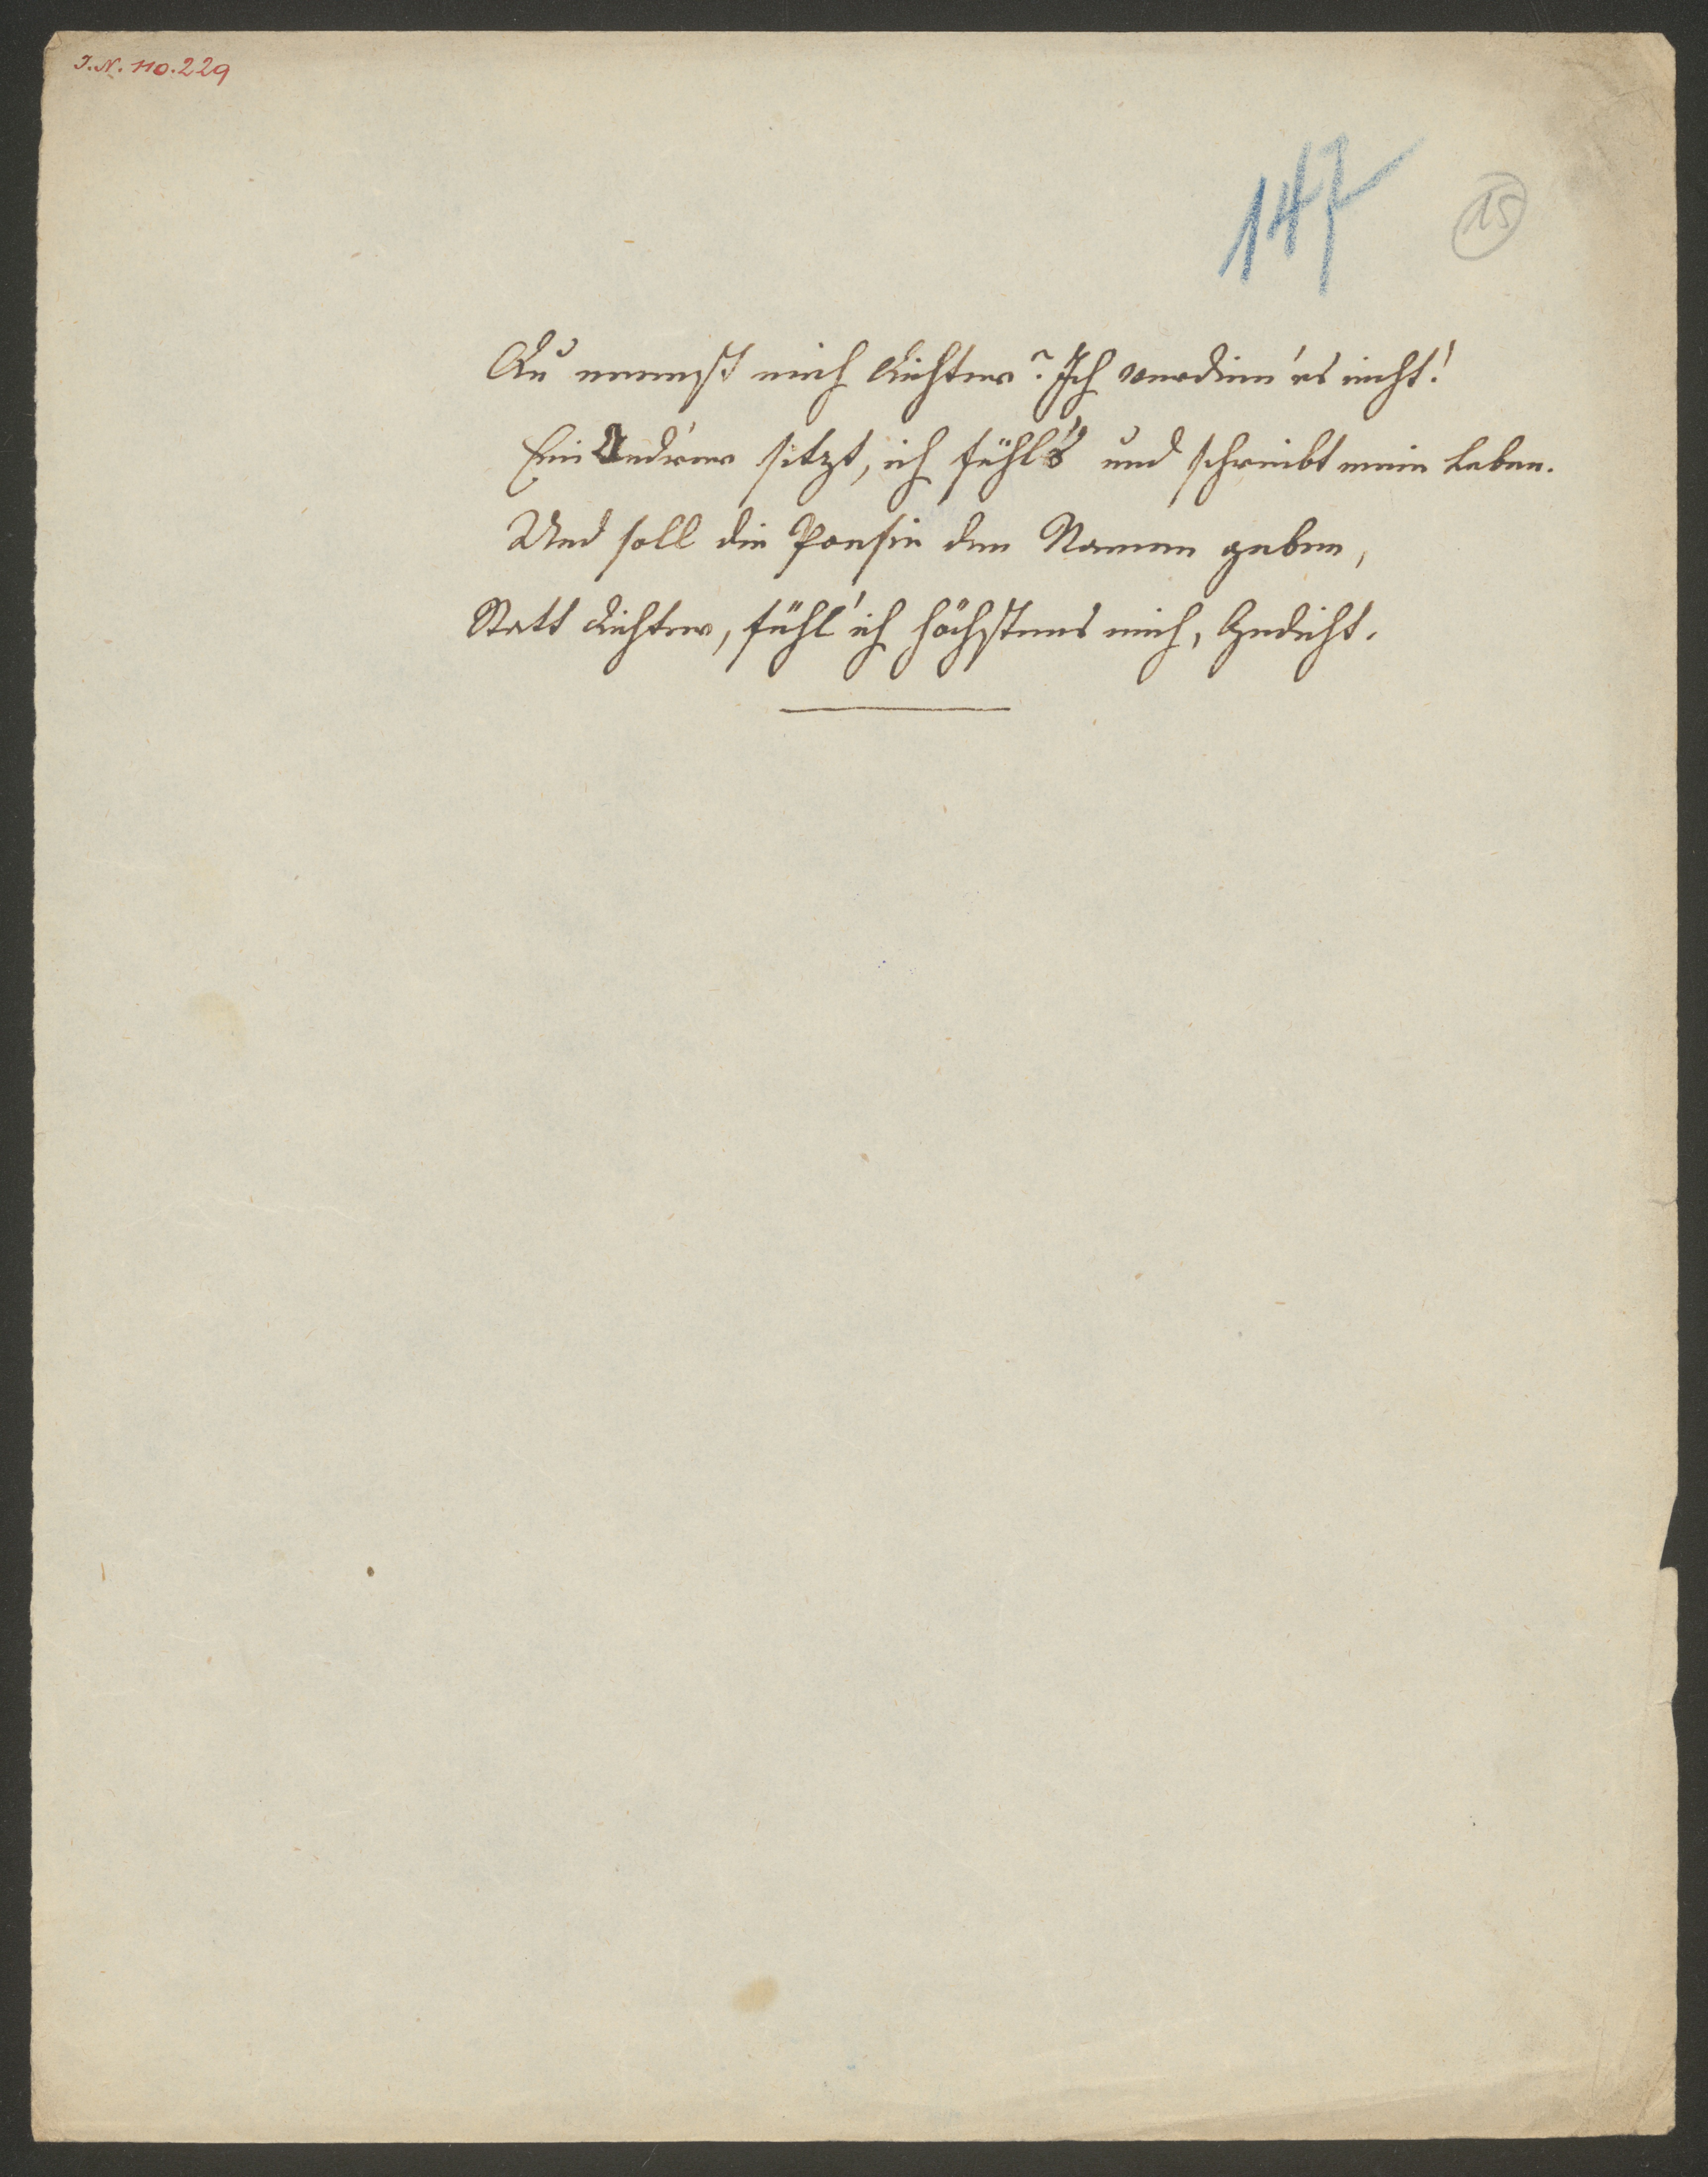 I.N. 110.229
147
15
Du nennst mich Dichter? Ich verdien' es nicht!
Ein Andrer sitzt, ich fühl's und schreibt mein Leben.
Und soll die Poesie den Namen geben,
Statt Dichter, fühl' ich höchstens mich, Gedicht.